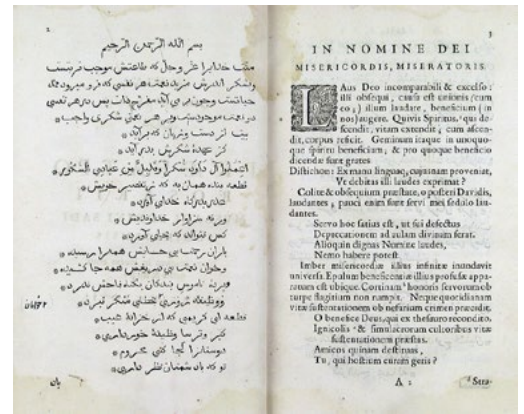 2
بسم الله الرحمن الرحيم
منت خدايرا عز وجل كه طاعتش موجب قربتست
وبشكر اندرش مزيد نعمت هر نفسی كه فرو ميرود ممد
حياتست وچون بر می آيد مفرح ذات پس در هر نفسی
دو نعمت موجودست وبر هر نعمتی شكری واجب
بيت از دست وزبان كه برآيد
كز عهده شكرش بدر آيد
اعملوا آل داود شكرا وقليل من عبادی الشكور
قطعه بنده همان به كه ز تقصير خويش
عذر بدرگاه خدای آورد
ور نه سزاوار خداونديش
كس نتواند كه بجای آورد
باران رحمت بی حسابش همه را رسيده
وخوان نعمت بی دريغش همه جا كشيده
پرده ناموس بندگان بگناه فاحش ندرد
ووظيفه روزی بخطای منكر نبرد
قطعه ای كريمی كه از خزانه غيب
كبر وترسا وظيفه خور داری
دوستانرا كجا كنی محروم
تو كه با دشمنان نظر داری
3
IN NOMINE DEI
MISERICORDIS, MISERATORIS.
LAus Deo incomparabili & excelso:
illi obsequi, causa est unionis (cum
eo;) illum laudare, beneficium (in
nos) augere. Quivis Spiritus, qui de-
scendit, vitam extendit; cum ascen-
dit, corpus reficit. Geminum itaque in unoquo-
que spiritu beneficium; & pro quoque beneficio
dicendæ sunt grates.
Distichon: Ex manu linguaq; cujusnam proveniat,
Ut debitas illi laudes exprimat?
Colite & obsequium præstate, o posteri Davidis,
laudantes; pauci enim sunt servi mei sedulo lau-
dantes.
Servo hoc satius est, ut sui defectus
Deprecationem ad aulam divinam ferat.
Alioquin dignas Nomine laudes,
Nemo habere potest.
Imber misericordiæ illius infinitæ inundavit
universa. Epulum beneficentiæ illius profusæ appa-
ratum est ubique. Cortinam honoris servorum ob
turpe flagitium non rumpit. Neque quotidianam
vitæ sustentationem ob nefarium crimen præcidit.
O benefice Deus, qui ex thesauro recondito,
Ignicolis & simulacrorum cultoribus vitæ
sustentationem præstas.
Amicos quinam destituas,
Tu, qui hostium curam geris?
A 2
Stra-